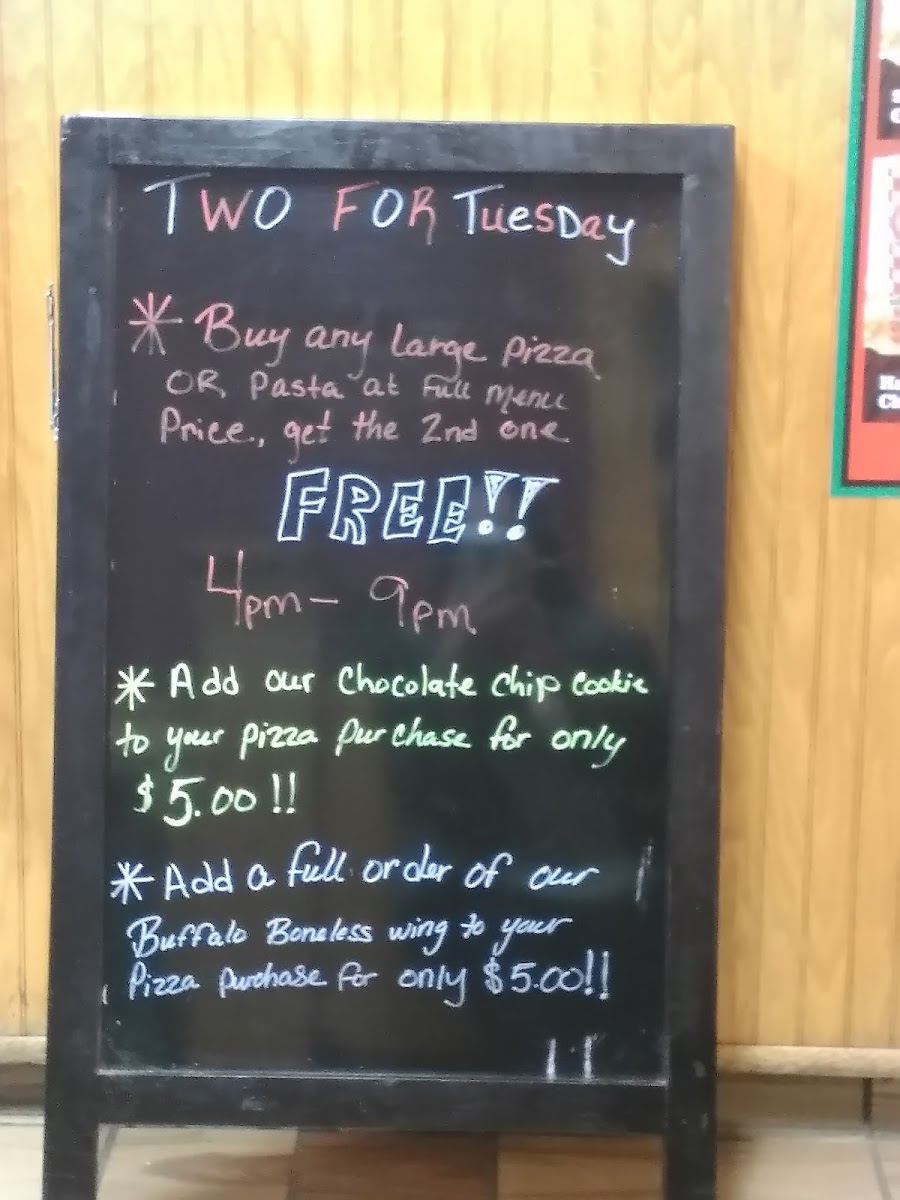 TWO FOR Tuesday
* Buy any Large Pizza
OR Pasta at Full Menu
Price, get the 2nd one
FREE!!
4pm - 9pm
* Add our Chocolate Chip Cookie
to your pizza purchase for only
$5.00!!
* Add a full order of our
Buffalo Boneless wing to your
Pizza purchase for only $5.00!!